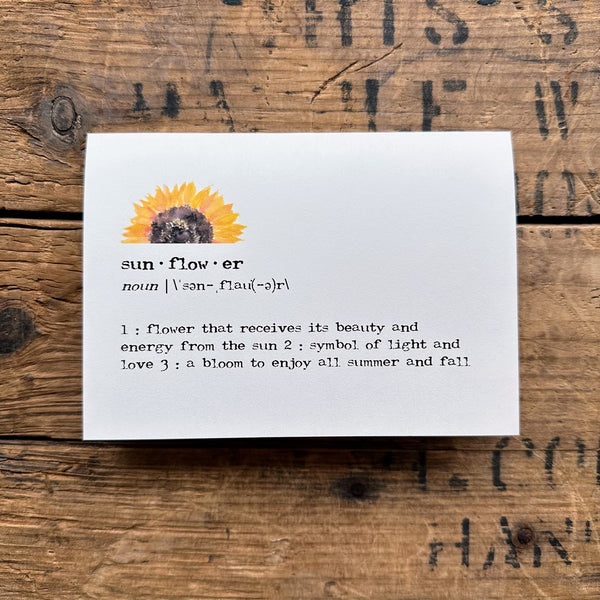 sun·flow·er
noun | \ˈsən-ˌflau̇(-ə)r\
1 : flower that receives its beauty and
energy from the sun 2 : symbol of light and
love 3 : a bloom to enjoy all summer and fall